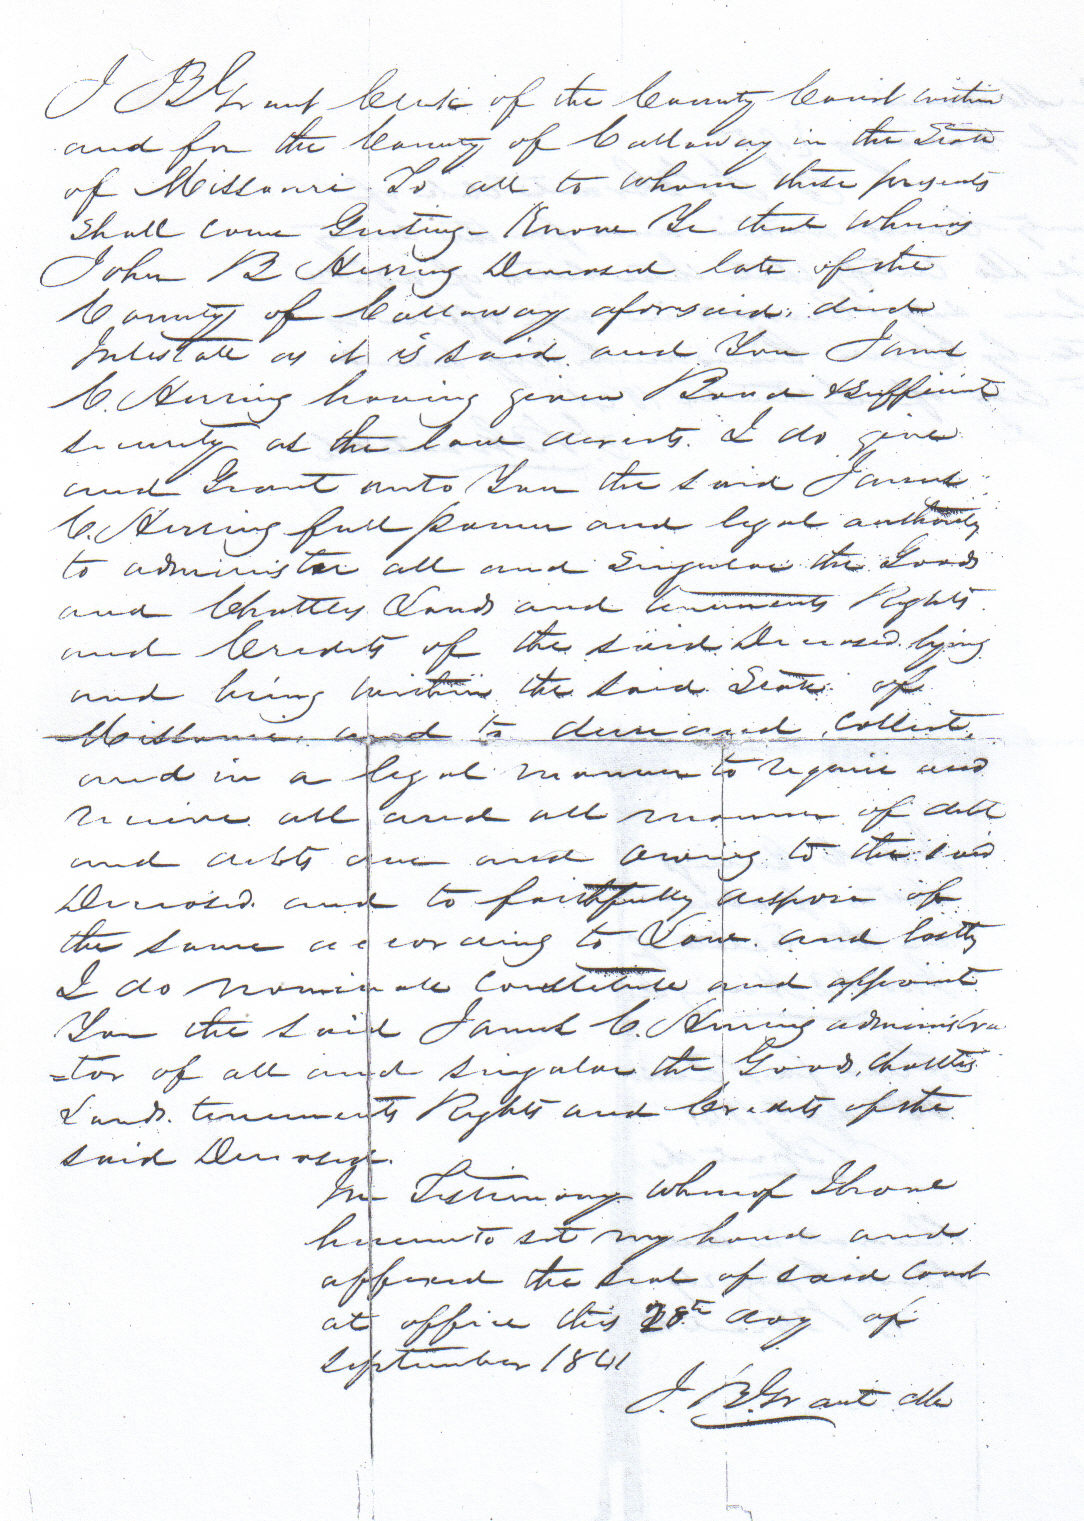 J B Grant Clerk of the County Court within
and for the County of Callaway in the State
of Missouri To all to whom these presents
Shall come Greeting - Know Ye that whereas
John B Herring Deceased late of the
County of Callaway aforsaid, died
Intestate as it is said and You James
C. Herring having given Bond & sufficient
security as the law directs. I do give
and Grant unto You the said James
C. Herring full power and legal authority
to administer all and Singular the Goods
and Chattles Lands and tenements Rights
and Credits of the said Deceased lying
and being within the said State of
Missouri and to demand, collect,
and in a legal manner to require and
receive all and all manner of debt
and debts due and owing to the said
Deceased and to faithfully dispose of
the same according to Law. and lastly
I do nominate constitute and appoint
You the said James C. Herring administra
=tor of all and singular the Goods, chattles
Lands. tenements Rights and Credits of the
said Deceased.
In Testimony whereof I have
hereunto set my hand and
affixed the seal of said Court
at office this 28th day of
September 1841
J. B. Grant clk